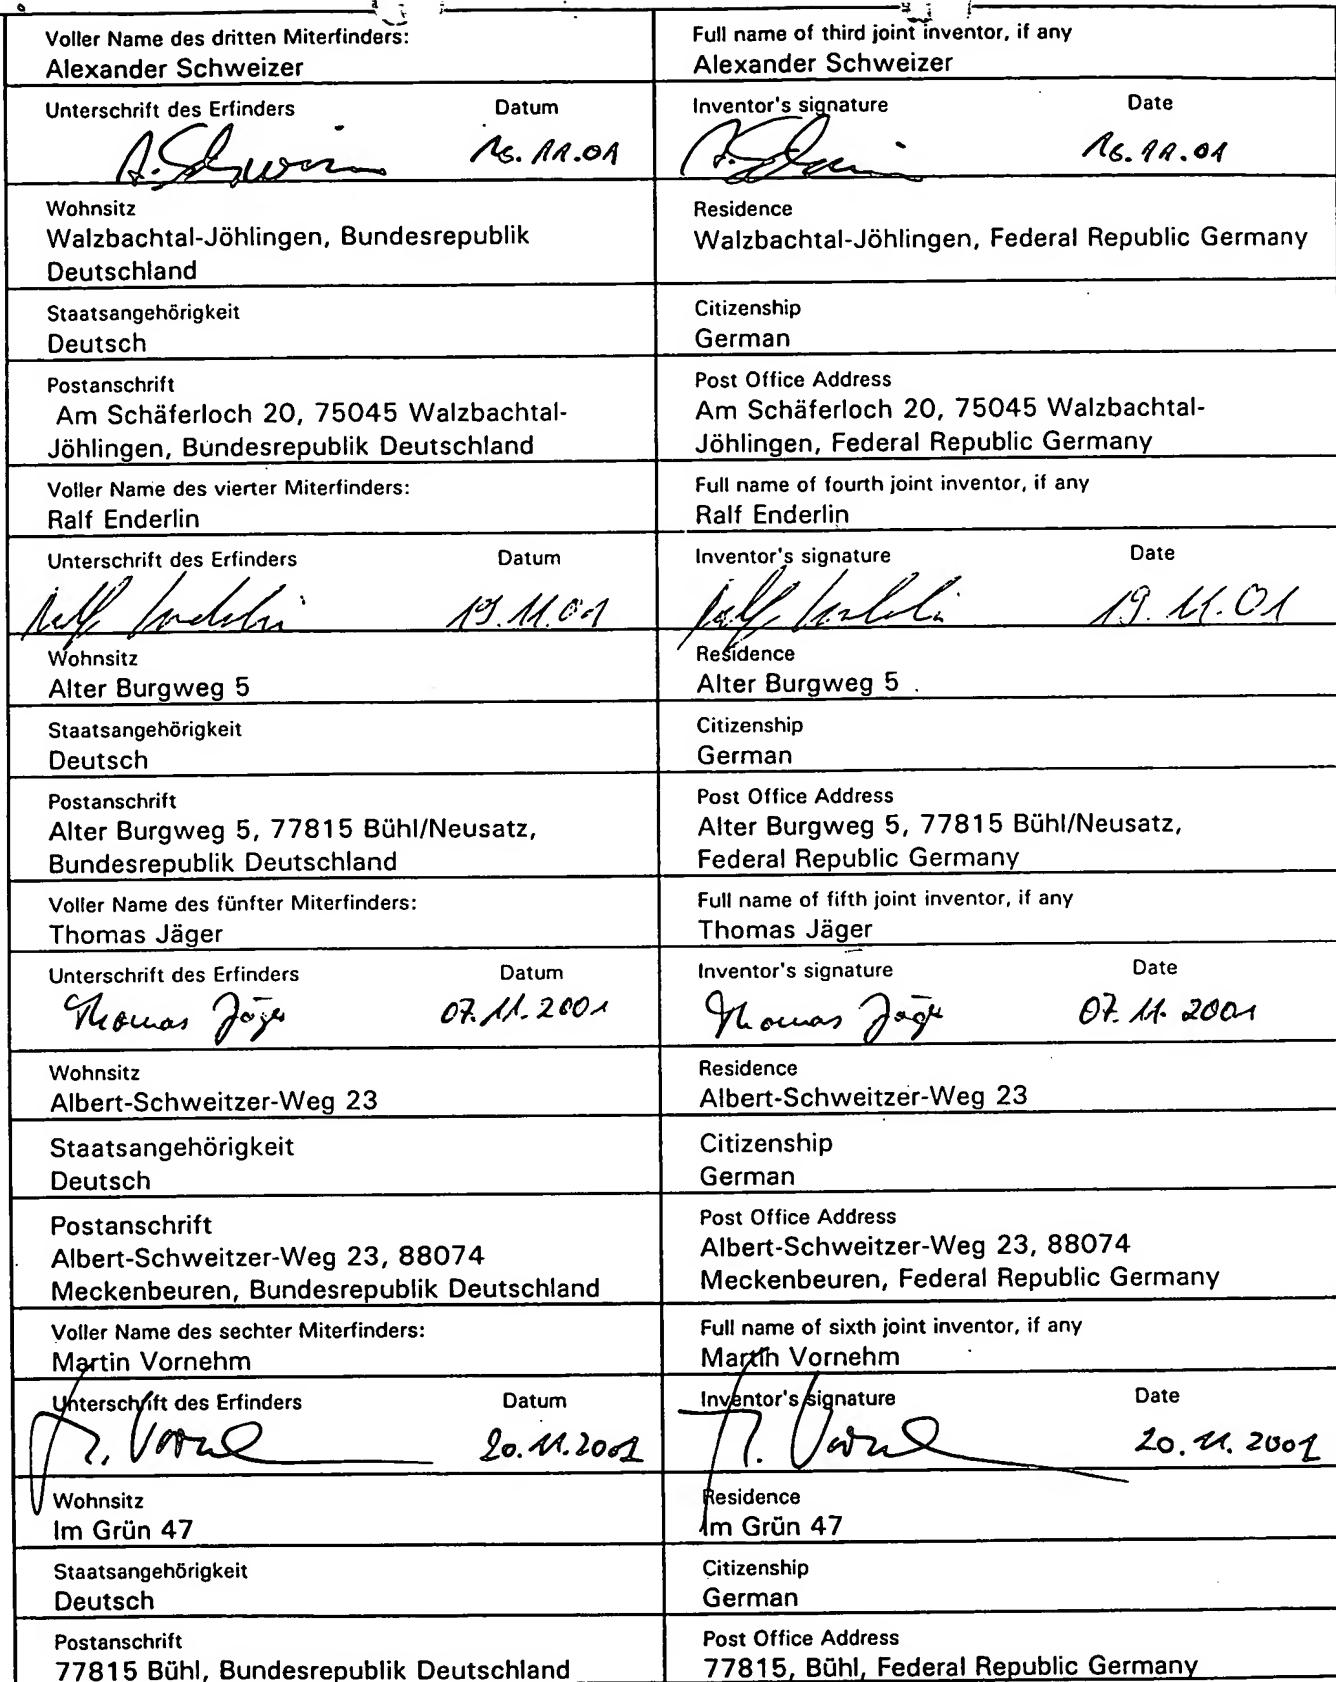 Voller Name des dritten Miterfinders:
Alexander Schweizer
Full name of third joint inventor, if any
Alexander Schweizer
Unterschrift des Erfinders Datum
16.11.01
Inventor's signature Date
16.11.01
Wohnsitz
Walzbachtal-Jöhlingen, Bundesrepublik
Deutschland
Residence
Walzbachtal-Jöhlingen, Federal Republic Germany
Staatsangehörigkeit
Deutsch
Citizenship
German
Postanschrift
Am Schäferloch 20, 75045 Walzbachtal-
Jöhlingen, Bundesrepublik Deutschland
Post Office Address
Am Schäferloch 20, 75045 Walzbachtal-
Jöhlingen, Federal Republic Germany
Voller Name des vierter Miterfinders:
Ralf Enderlin
Full name of fourth joint inventor, if any
Ralf Enderlin
Unterschrift des Erfinders Datum
19.11.01
Inventor's signature Date
19.11.01
Wohnsitz
Alter Burgweg 5
Residence
Alter Burgweg 5
Staatsangehörigkeit
Deutsch
Citizenship
German
Postanschrift
Alter Burgweg 5, 77815 Bühl/Neusatz,
Bundesrepublik Deutschland
Post Office Address
Alter Burgweg 5, 77815 Bühl/Neusatz,
Federal Republic Germany
Voller Name des fünfter Miterfinders:
Thomas Jäger
Full name of fifth joint inventor, if any
Thomas Jäger
Unterschrift des Erfinders Datum
Thomas Jäger 07.11.2001
Inventor's signature Date
Thomas Jäger 07.11.2001
Wohnsitz
Albert-Schweitzer-Weg 23
Residence
Albert-Schweitzer-Weg 23
Staatsangehörigkeit
Deutsch
Citizenship
German
Postanschrift
Albert-Schweitzer-Weg 23, 88074
Meckenbeuren, Bundesrepublik Deutschland
Post Office Address
Albert-Schweitzer-Weg 23, 88074
Meckenbeuren, Federal Republic Germany
Voller Name des sechter Miterfinders:
Martin Vornehm
Full name of sixth joint inventor, if any
Martin Vornehm
Unterschrift des Erfinders Datum
20.11.2001
Inventor's signature Date
20.11.2001
Wohnsitz
Im Grün 47
Residence
Im Grün 47
Staatsangehörigkeit
Deutsch
Citizenship
German
Postanschrift
77815 Bühl, Bundesrepublik Deutschland
Post Office Address
77815, Bühl, Federal Republic Germany